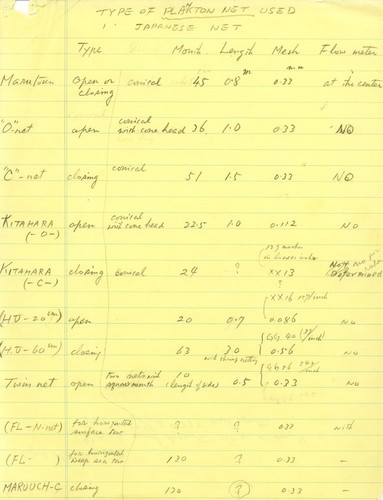 TYPE OF PLANKTON NET USED
1. JAPANESE NET
Type Mouth Length Mesh Flow meter
m mm
Marutoku open or closing conical 45 0.8 0.33 at the center
"O"-net open conical with cone head 36 1.0 0.33 NO
"C"-net closing conical 51 1.5 0.33 NO
KITAHARA (-O-) open conical with cone head 22.5 1.0 0.112 No
KITAHARA (-C-) closing conical 24 ? XX13 ? Not determined
(HU-20cm) open 20 0.7 XX16 0.086 No
(HU-60cm) closing 63 3.0 GG 40 /inch 0.56 No
Twin net open two nets with square mouth 10 (length of side) 0.5 0.33 No
(FL-N-net) for horizontal surface tow ? ? 0.33 with
(FL- ) for horizontal deep sea tow 130 ? 0.33 –
closing 130 ? 0.33 –